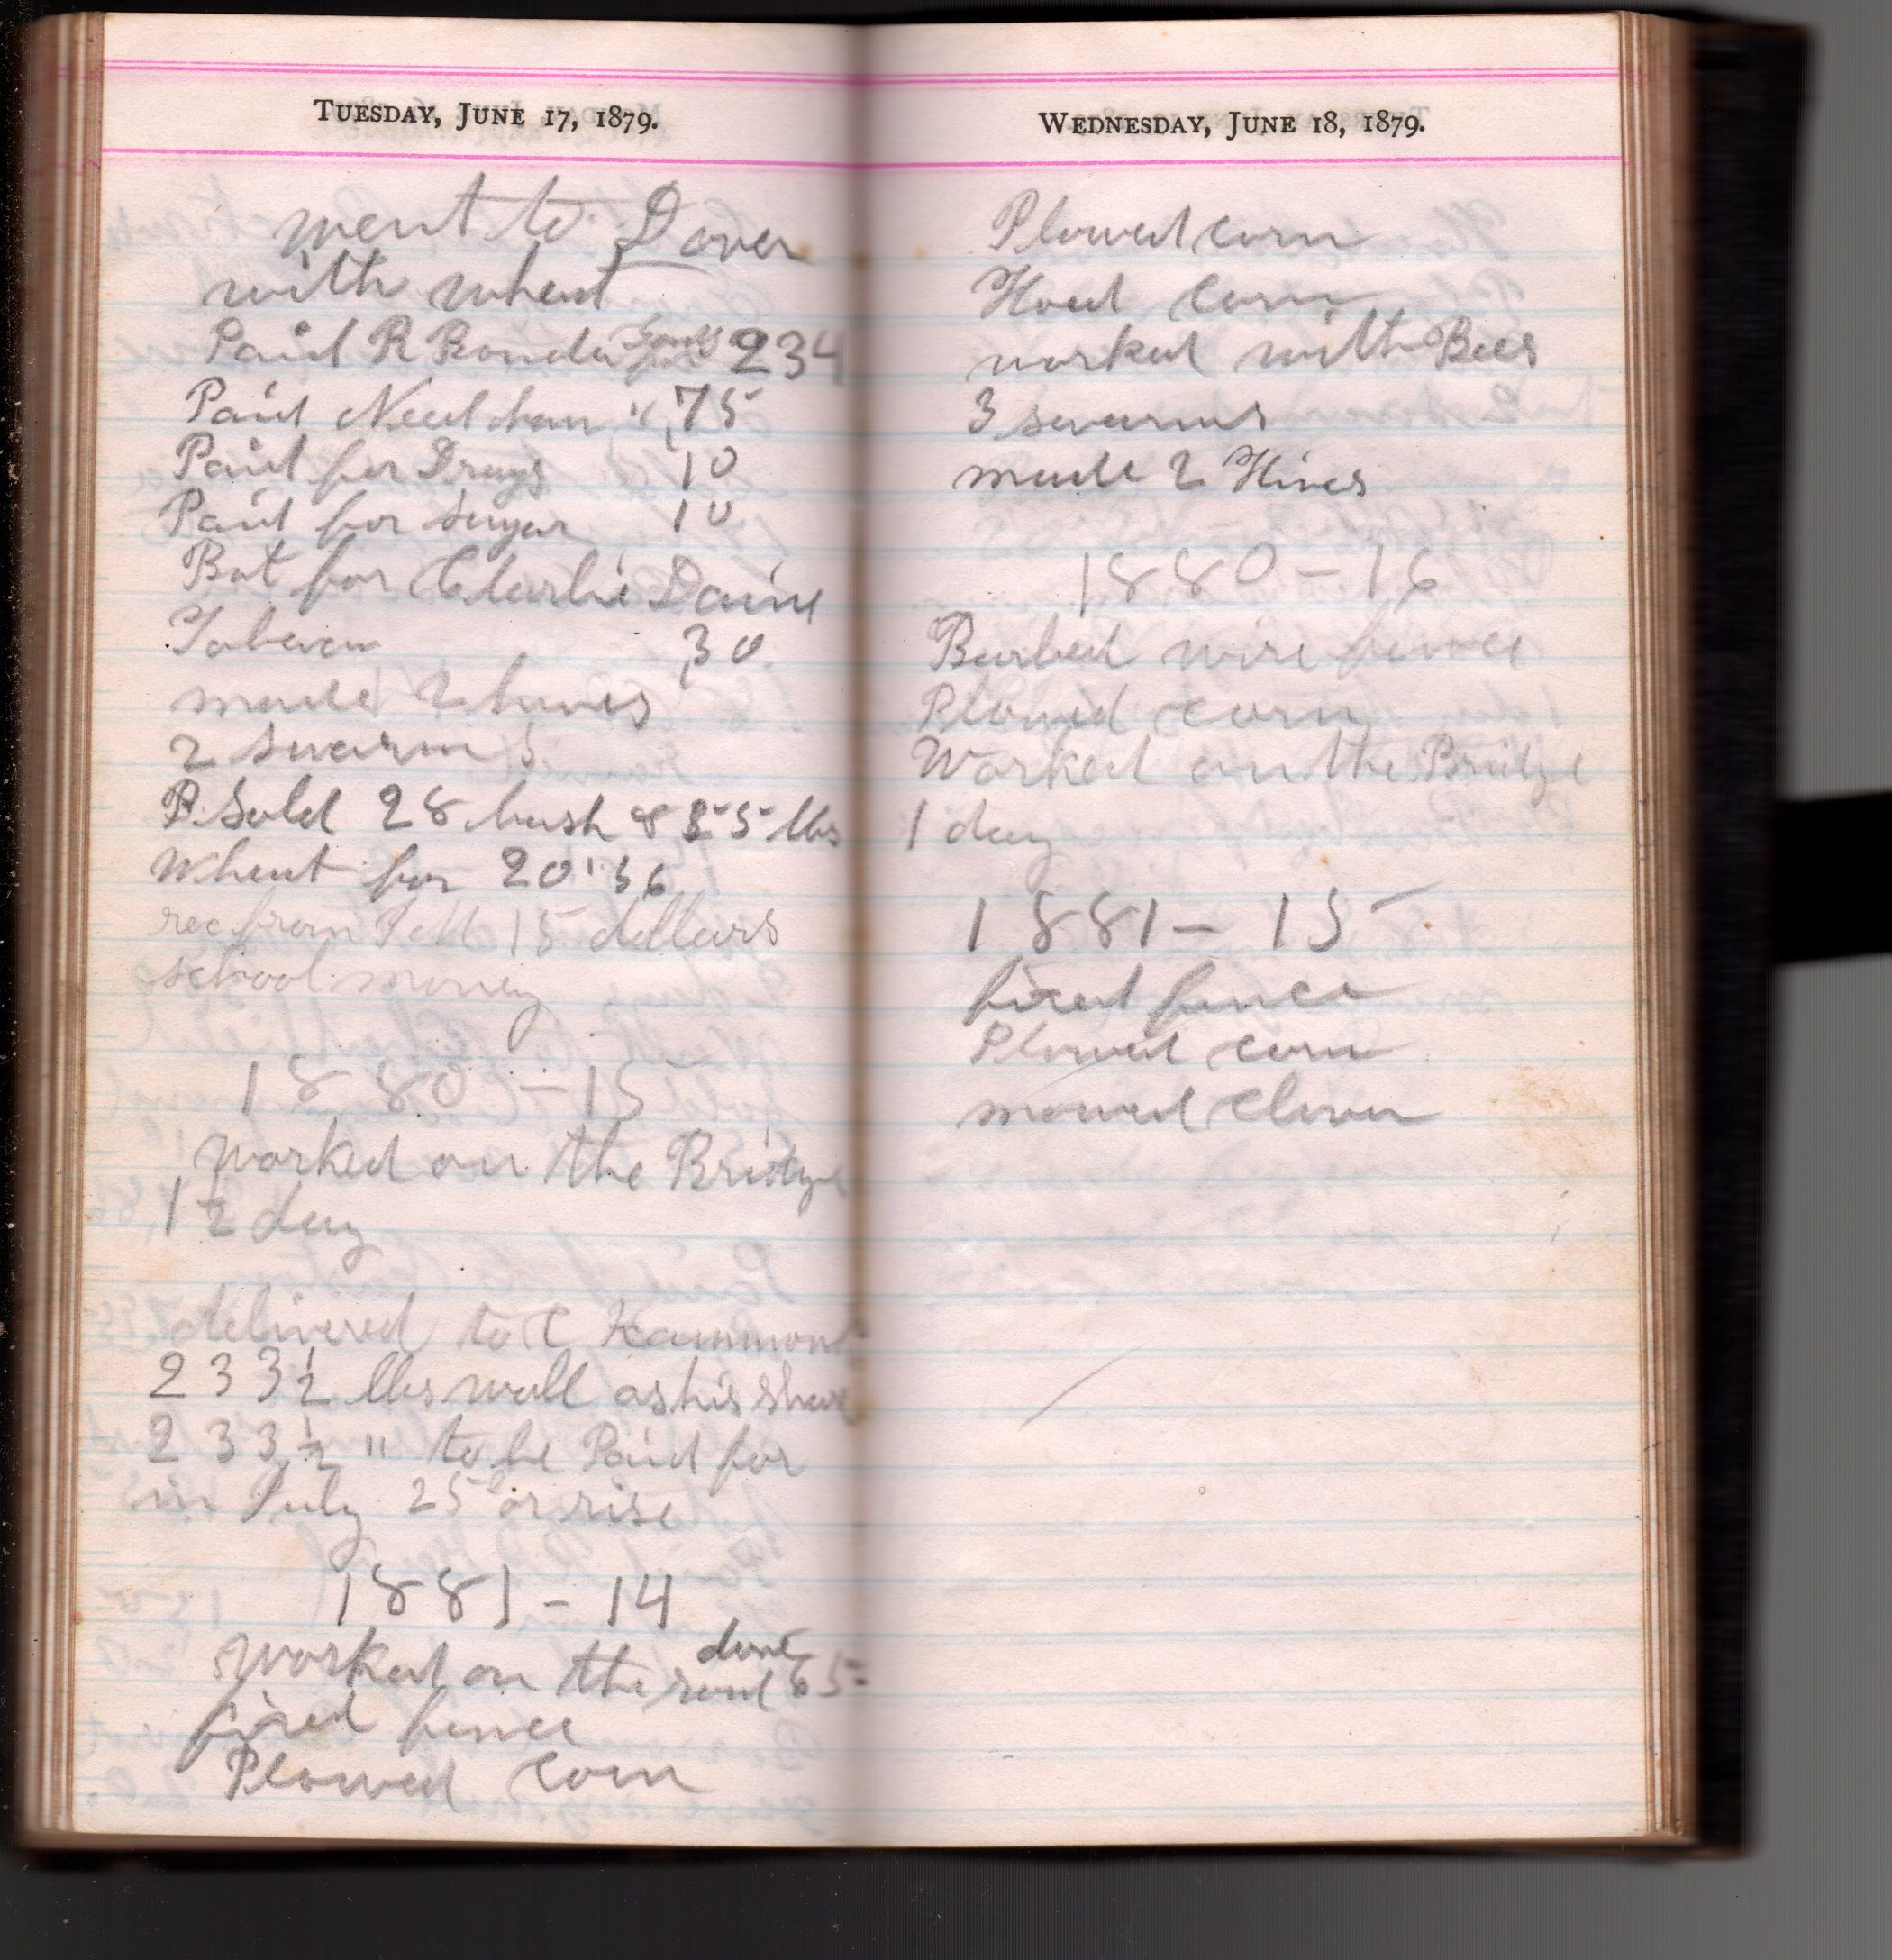 TUESDAY, JUNE 17, 1879.
went to Dover
with wheat
Paid R Bonda 234
Paid Needham " ,75
Paid for Drugs 10
Paid for sugar 10
Bot for Charlie Daine
,30
made 2 hives
2 swarms
P. Sold 28 bush & 55 lbs
Wheat for 20"36
rec from 15 dollars
school money
1880 - 15
worked on the Bridge
1 1/2 day
delivered to C Hammond
233 1/2 lbs wool as his share
233 1/2 " to be Paid for
in July 25 or rise
1881 - 14
worked on the road 65
fixed fence
Plowed Corn
WEDNESDAY, JUNE 18, 1879.
Plowed corn
Hoed Corn
worked with Bees
3 swarms
made 2 Hives
1880 - 16
Barbed wire fence
Plowed corn
Worked on the Bridge
1 day
1881 - 15
fixed fence
Plowed corn
mowed Clover